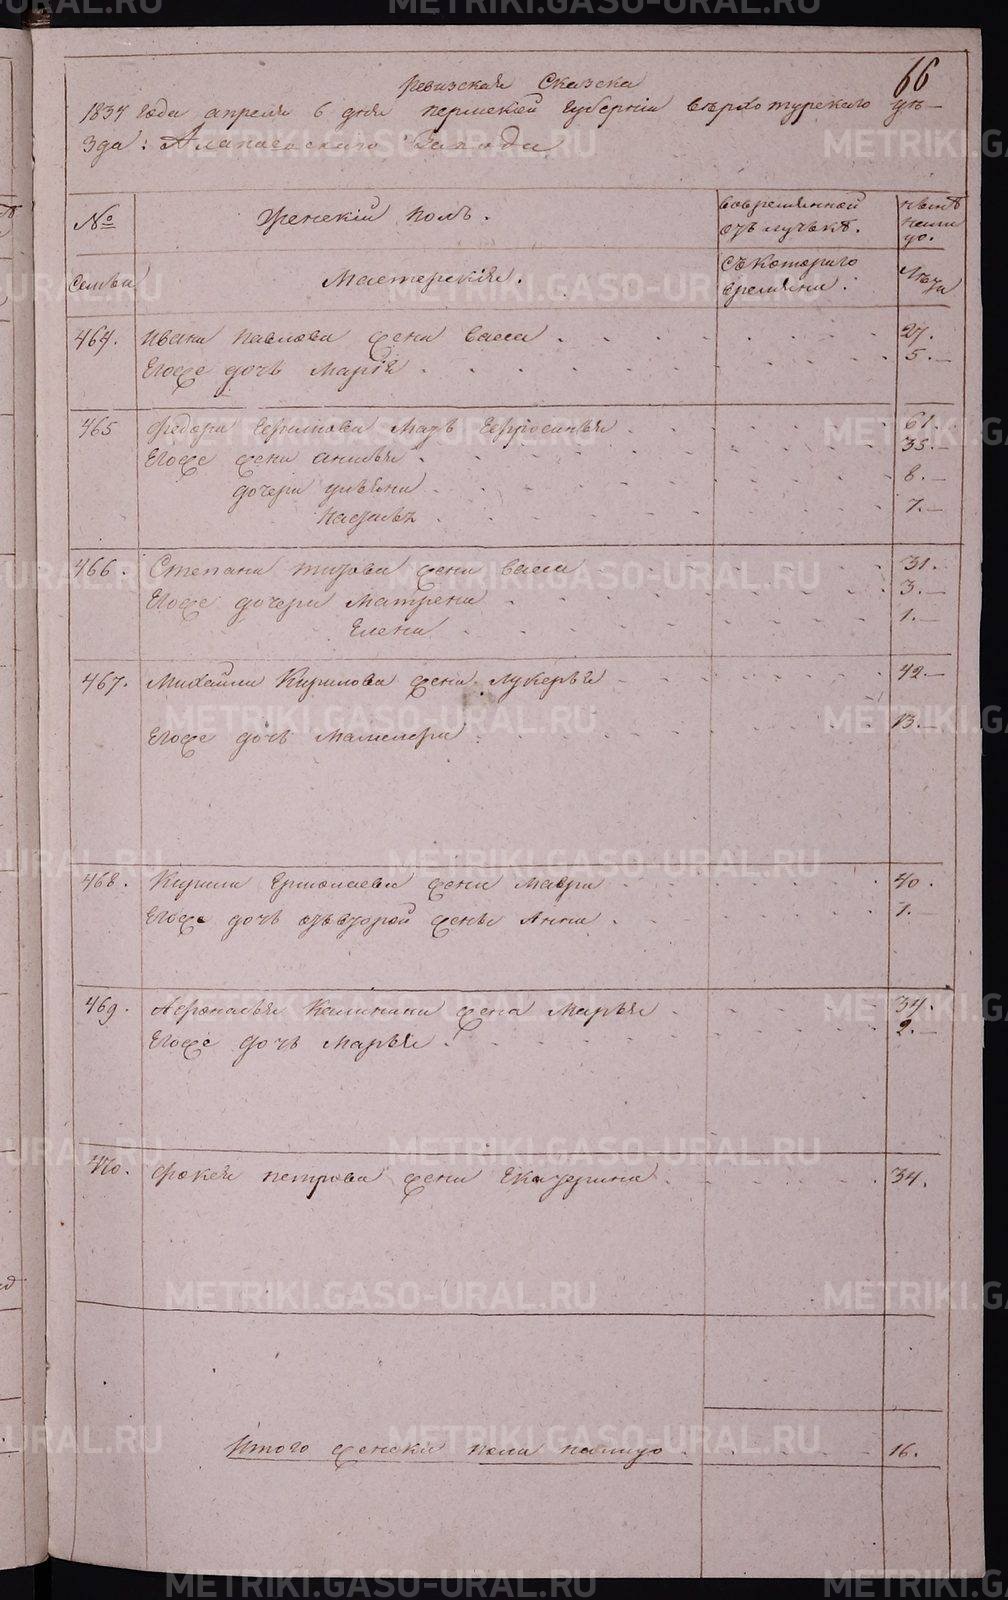 66
Ревизская Сказска
1834 года апреля 6 дня пермской губернiи Верхотурскаго уѣ—
зда: Алапаевскаго завода
№ Женскiй полъ. вовременной нынѣ
отлучькѣ. нали
цо.
Семьи Мастерскiя. съ котораго Лѣта
времяни.
464. Ивана павлова жена васса 27.
Егоже дочь Марiя 5.—
465 Федора Ефимова Мать Ефросинья 61.
Егоже жена анисья 35.—
дочери ульяна 8.—
настасья 7.—
466. Степана титова жена васса 31.
Егоже дочери Матрена 3.—
Елена 1.—
467. Михайла Кирилова жена Лукерья 42.—
Егоже дочь 13.—
468. Кирила Ермолаева жена Мавра 40.
Егоже дочь отъ второй жены Анна 7.
469. Афонасья Калинина жена Марья 34.
Егоже дочь Марья 2.—
470. Фокея петрова жена Екатерина 34.
Итого женска пола налицо 16.
METRIKI.GASO-URAL.RU